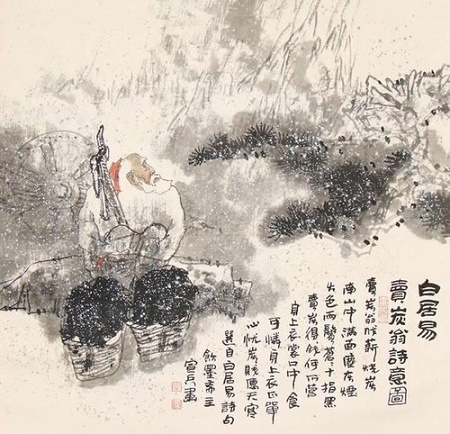 白居易
賣炭翁詩意圖
賣炭翁伐薪燒炭
南山中滿面塵灰煙
火色兩鬢蒼十指黑
賣炭得錢何所營
身上衣裳口中食
可憐身上衣正單
心忧炭賤愿天寒
選自白居易詩句
飲墨齋主
畫